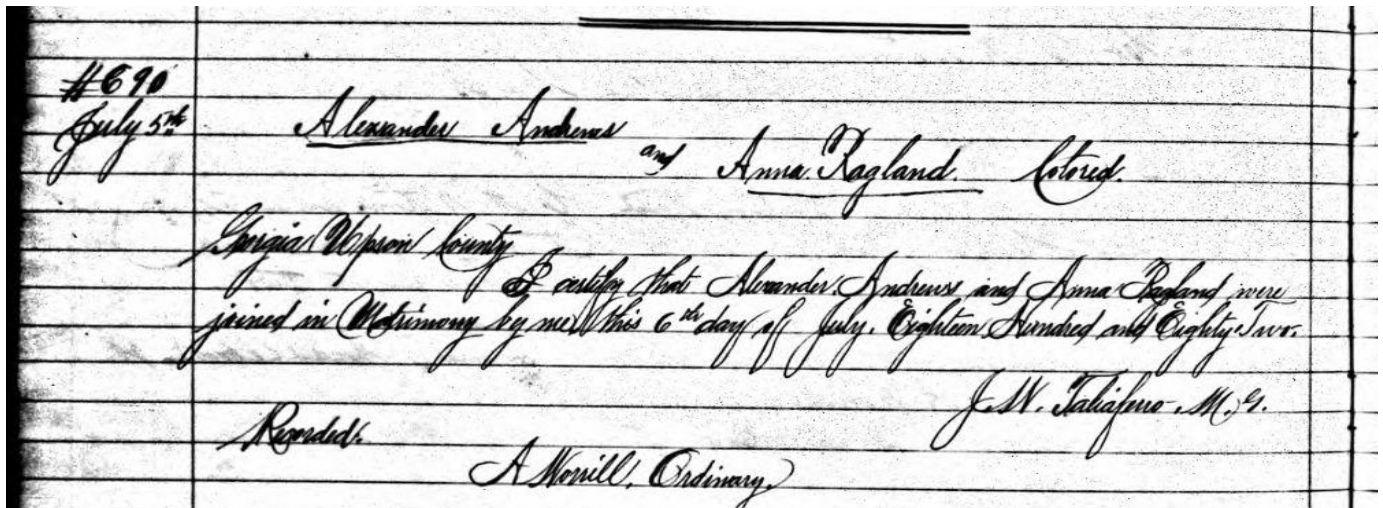 #690
July 5th
Alexander Andrews
and
Anna Ragland. Colored.
Georgia Upson County
I certify that Alexander Andrews and Anna Ragland were
joined in Matrimony by me this 6th day of July. Eighteen Hundred and Eighty Two.
J. W. Taliaferro. M. G.
Recorded.
A Worrill, Ordinary.